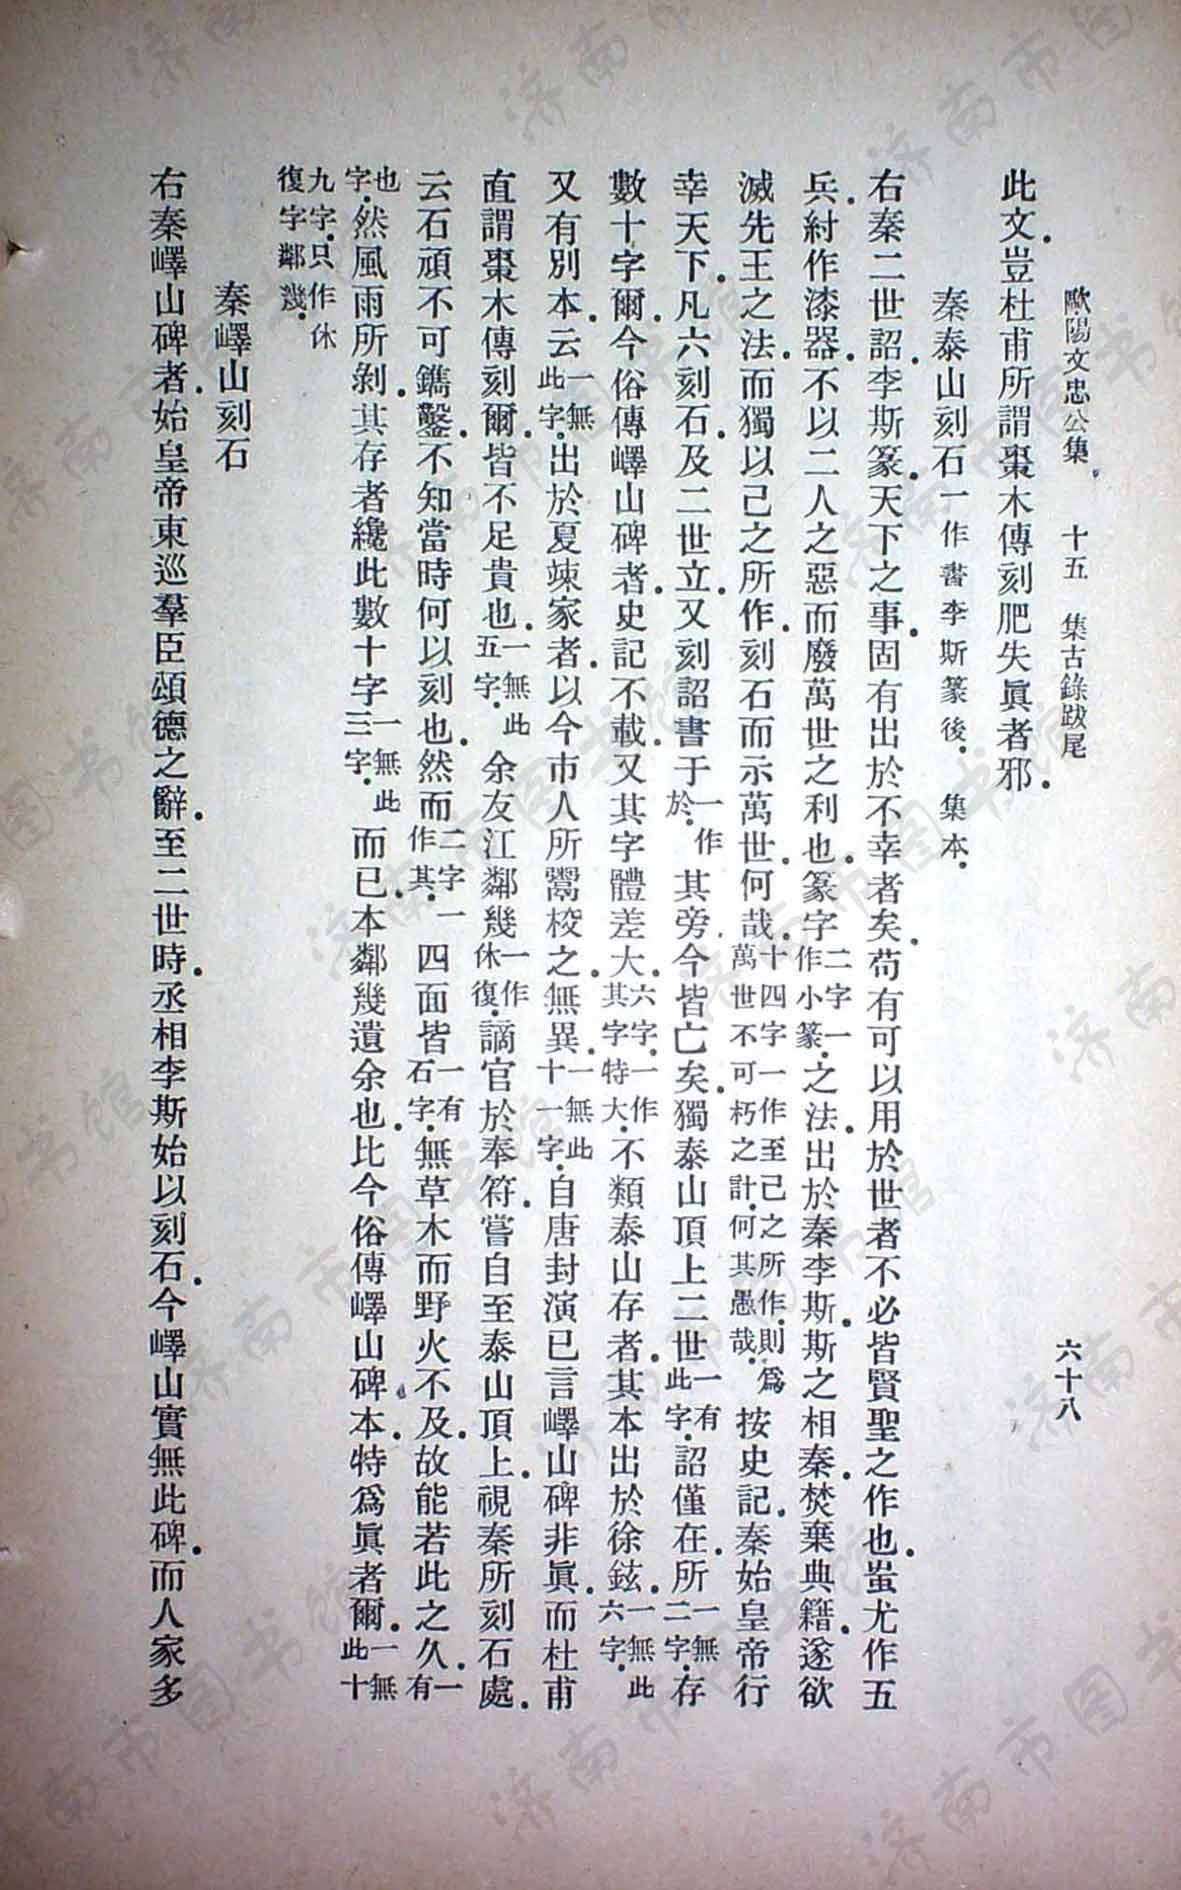 歐陽文忠公集 十五 集古錄跋尾 六十八
此文.豈杜甫所謂棗木傳刻肥失眞者邪.
秦泰山刻石一作書李斯篆後.集本.
右秦二世詔.李斯篆.天下之事.固有出於不幸者矣.苟有可以用於世者不必皆賢聖之作也.蚩尤作五
兵.紂作漆器.不以二人之惡而廢萬世之利也.篆字二字一作小篆.之法.出於秦李斯.斯之相秦.焚棄典籍.遂欲
滅先王之法.而獨以己之所作.刻石而示萬世.何哉.十四字一作至己之所作.則爲萬世不可朽之計.何其愚哉.按史記.秦始皇帝行
幸天下.凡六刻石.及二世立.又刻詔書于一作於.其旁.今皆亡矣.獨泰山頂上二世一有此字.詔僅在.所一無二字.存
數十字爾.今俗傳嶧山碑者.史記不載.又其字體差大.六字.一作其字特大.不類泰山存者.其本出於徐鉉.一無此六字.
又有別本.云一無此字.出於夏竦家者.以今市人所鬻校之.無異.一無此十一字.自唐封演已言嶧山碑非眞.而杜甫
直謂棗木傳刻爾.皆不足貴也.一無此五字.余友江鄰幾一作休復.謫官於奉符.嘗自至泰山頂上.視秦所刻石處.
云石頑不可鐫鑿.不知當時何以刻也.然而二字一作其.四面皆一有石字.無草木.而野火不及.故能若此之久.一有
也字.然風雨所剝.其存者纔此數十字一無此三字.而已.本鄰幾遺余也.比今俗傳嶧山碑本.特爲眞者爾.一無此十
九字.只作休復字鄰幾.
秦嶧山刻石
右秦嶧山碑者.始皇帝東巡羣臣頌德之辭.至二世時.丞相李斯始以刻石.今嶧山實無此碑.而人家多